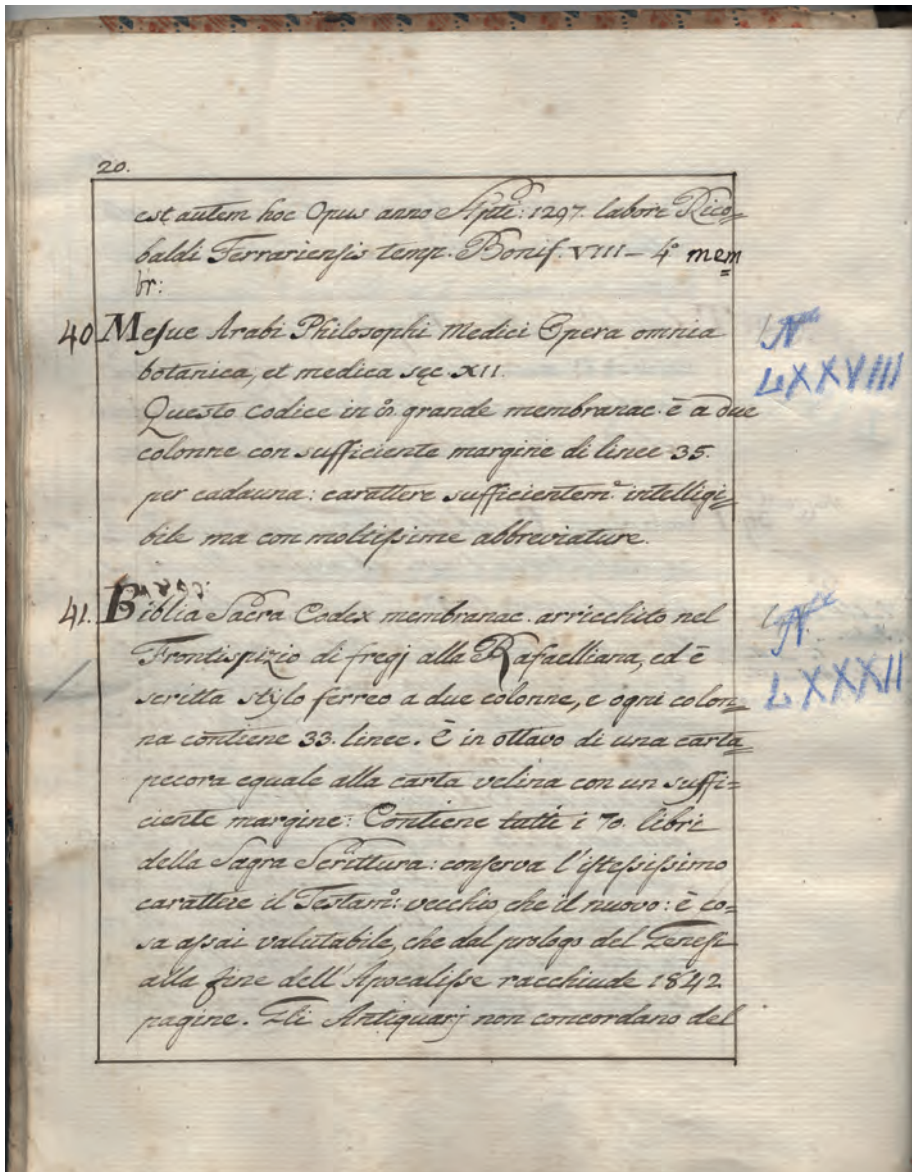 20.
est autem hoc Opus anno Xpti: 1297. labore Rico=
baldi Ferrariensis temp. Bonif. VIII – 4° mem=
br:
40 Mesue Arabi Philosophi Medici Opera omnia
botanica, et medica sęc. XII.
Questo codice in grande membranac. è a due
colonne con sufficiente margine di linee 35.
per cadauna: carattere sufficientem.e intelligi=
bile ma con moltissime abbreviature.
N
LXXVIII
41. Biblia Sacra Codex membranac. arricchito nel
Frontispizio di fregj alla Rafaelliana, ed è
scritta stylo ferreo a due colonne, e ogni colon=
na contiene 33. linee. È in ottavo di una carta
pecora eguale alla carta velina con un suffi=
ciente margine: Contiene tutti i 70. libri
della Sagra Scrittura: conserva l'istessissimo
carattere il Testam:° vecchio, che il nuovo: è co=
sa assai valutabile, che dal prologo del Genesi
alla fine dell'Apocalisse racchiude 1842
pagine. Gli Antiquarj non concordano del
N.
LXXXII